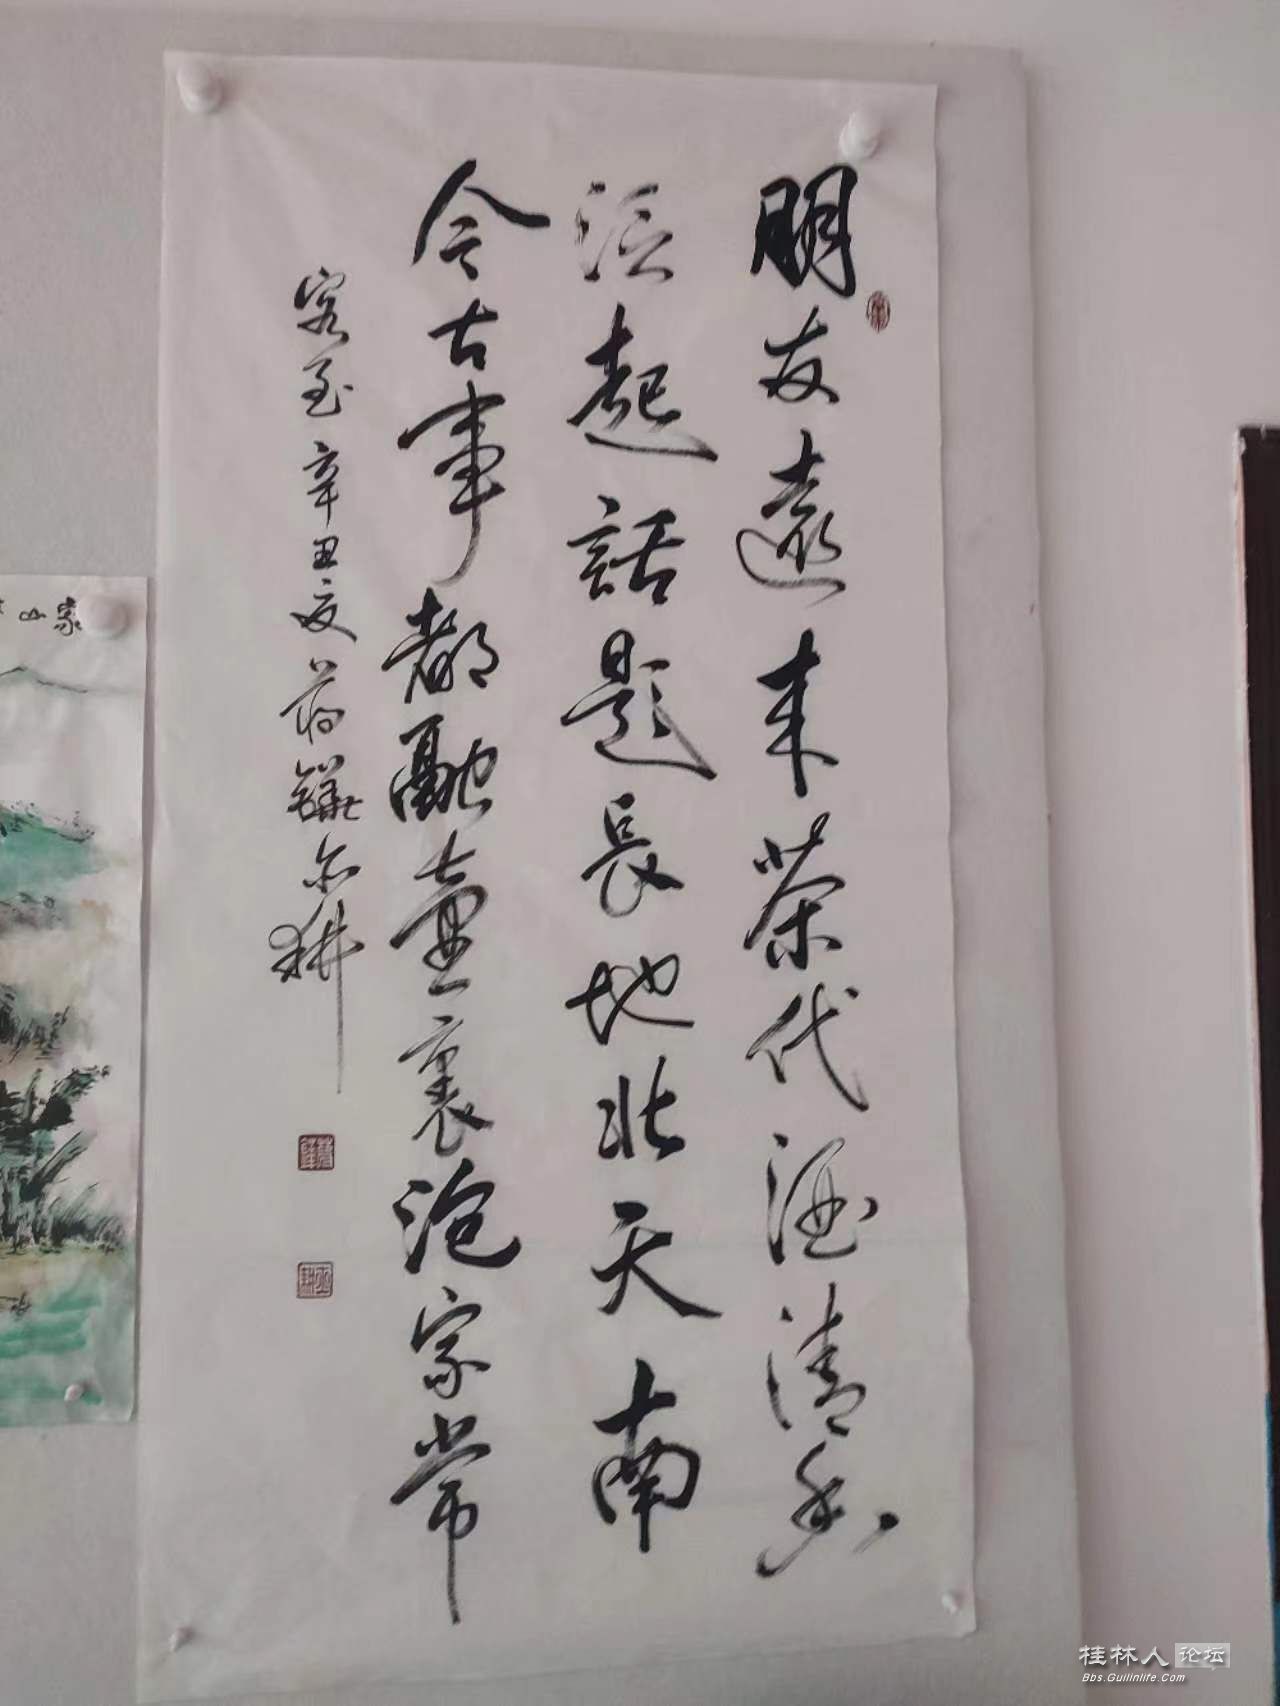 朋友遠來茶代酒清香
泛起話題長地北天南
今古事都融壷裏沧家常
客至 辛丑夏 蒋鏵尔耕
家山
桂林人论坛
Bbs.Guilinlife.Com